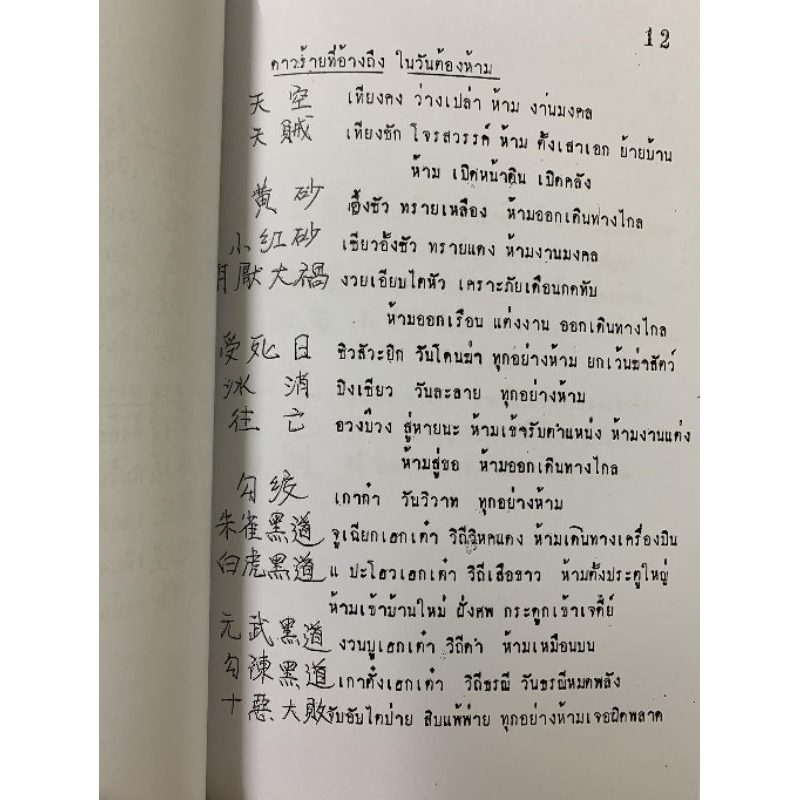 12
ดาวร้ายที่อ้างถึง ในวันต้องห้าม
天空 เทียงคง ว่างเปล่า ห้าม งานมงคล
天賊 เทียงซัก โจรสวรรค์ ห้าม ตั้งเสาเอก ย้ายบ้าน
ห้าม เปิดหน้าดิน เปิดคลัง
黄砂 อึ้งซัว ทรายเหลือง ห้ามออกเดินทางไกล
小紅砂 เซียวอั้งซัว ทรายแดง ห้ามงานมงคล
月厭大禍 งวยเอียบไตหัว เคราะภัยเดือนกดทับ
ห้ามออกเรือน แต่งงาน ออกเดินทางไกล
受死日 ซิวสัวะยิก วันโดนฆ่า ทุกอย่างห้าม ยกเว้นฆ่าสัตว์
冰消 ปิงเซียว วันละลาย ทุกอย่างห้าม
往亡 อวงบ๊วง สู่หายนะ ห้ามเข้ารับตำแหน่ง ห้ามงานแต่ง
ห้ามสู่ขอ ห้ามออกเดินทางไกล
勾绞 เกาก้า วันวิวาท ทุกอย่างห้าม
朱雀黑道 จูเฉียกเฮกเต๋า วิถีวิหคแดง ห้ามเดินทางเครื่องบิน
白虎黑道 แ ปะโฮวเฮกเต๋า วิถีเสือขาว ห้ามตั้งประตูใหญ่
ห้ามเข้าบ้านใหม่ ฝั่งศพ กระดูกเข้าเจดีย์
元武黑道 งวนบูเฮกเต๋า วิถีดำ ห้ามเหมือนบน
勾陳黑道 เกาตั้งเฮกเต๋า วิถีธรณี วันธรณีหมดพลัง
十惡大敗 จับอับไตป่าย สิบแพ้พ่าย ทุกอย่างห้ามเจอผิดพลาด